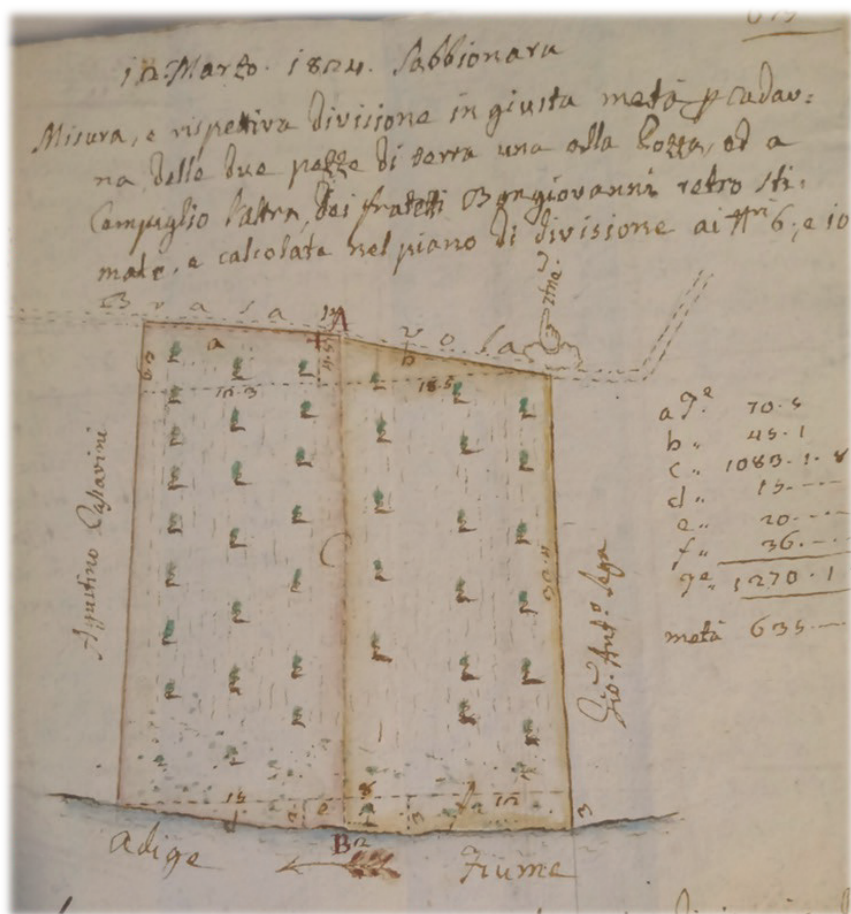 12. Marzo. 1824. Sabbionara
Misura, e rispettiva divisione in giusta metà p cadau:
na, delle due pezze di terra una alla Pozza, ed a
Campiglio l'altra, dei fratelli Bongiovanni retro sti:
mate, e calcolate nel piano di divisione ai Nri 6., e 10
A
a
4.5
b
18.5
Agustino
C
30.4
Gio. Anto. Sega
a
70.5
b „ 45.1
c „ 1083.1.8
d „ 15.----
e „ 20.----
f „ 36.----
1270.1
metà 635.----
15
d
2
e
8
3
12
3
B
Adige
Fiume